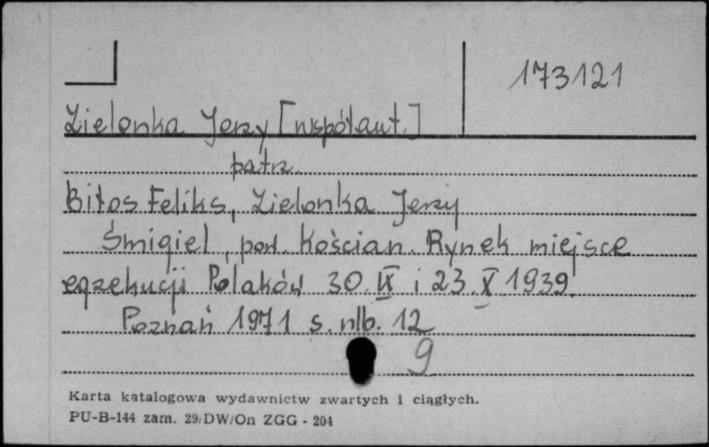 173121
Zielonka Jerzy [współaut.]
patrz
Bitos Feliks, Zielonka Jerzy
Śmigiel, pow. Kościan. Rynek miejsce
egzekucji Polaków 30.IX i 23.X.1939.
Poznań 1971 s. nlb. 12
9
Karta katalogowa wydawnictw zwartych i ciągłych.
PU-B-144 zam. 29/DW/On ZGG - 204